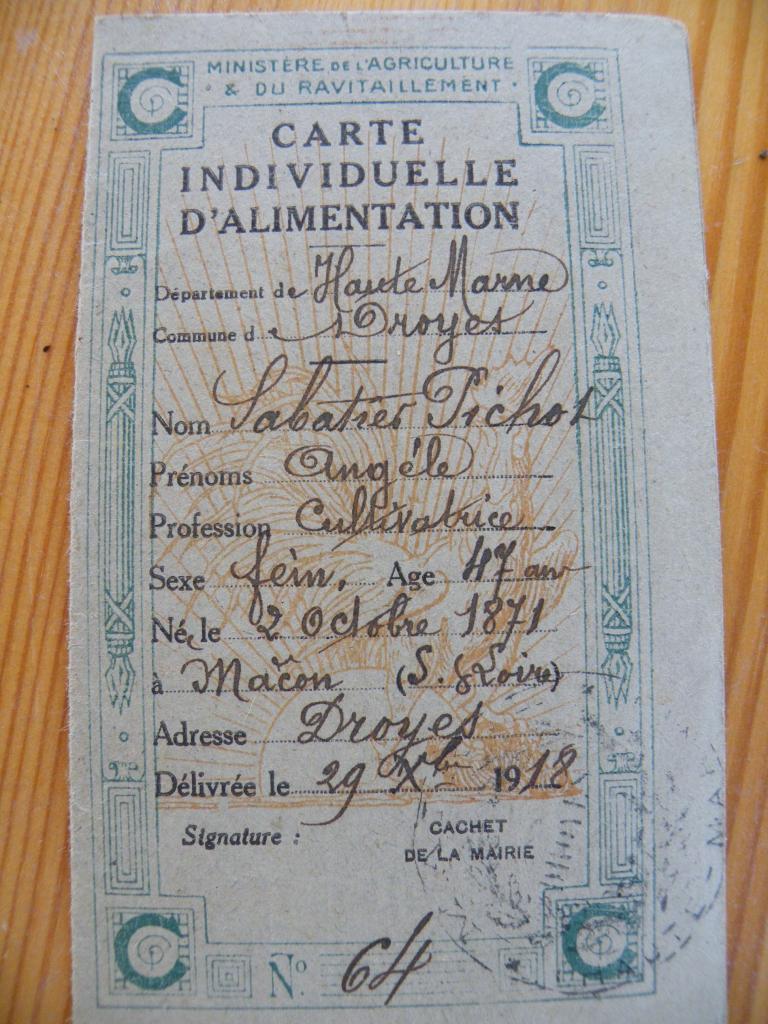 MINISTÈRE DE L'AGRICULTURE
& DU RAVITAILLEMENT
CARTE
INDIVIDUELLE
D'ALIMENTATION
Département de Haute Marne
Commune de Droyes
Nom Sabatier Pichot
Prénoms Angéle
Profession Cultivatrice
Sexe fém. Age 47 ans
Né le 2 Octobre 1871
à Mâcon (S. & Loire)
Adresse Droyes
Délivrée le 29 Xbre 1918
Signature :
CACHET
DE LA MAIRIE
C C C C
N° 64